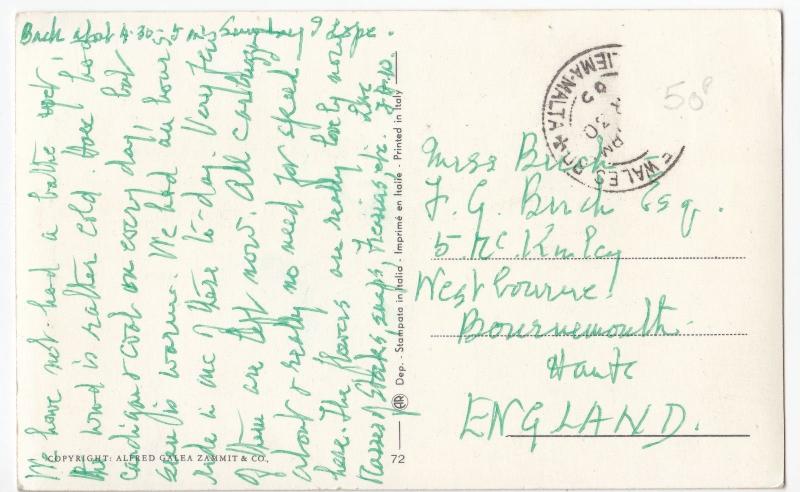 Back about 4.30-5 ms Sunday I hope.
We have not had a bathe yet
the wind is rather cold. Have had
cardigan & coat on every day, but
sun is warm. We had an hours
ride in one of these to-day. Very few
of them are left now. All cars & buses
about & really no need for
here. The flowers are really lovely now
Masses of Stocks, snaps, Freesias etc. Love
COPYRIGHT: ALFRED GALEA ZAMMIT & CO.,
72
AR Dep. - Stampata in Italia - Imprimé en Italie - Printed in Italy
WALES RD
SLIEMA-MALTA
PM
30
50P
Miss Birch &
F. G. Birch Esq.
5 McKinley
Westbourne
Bournemouth
Hants
ENGLAND.